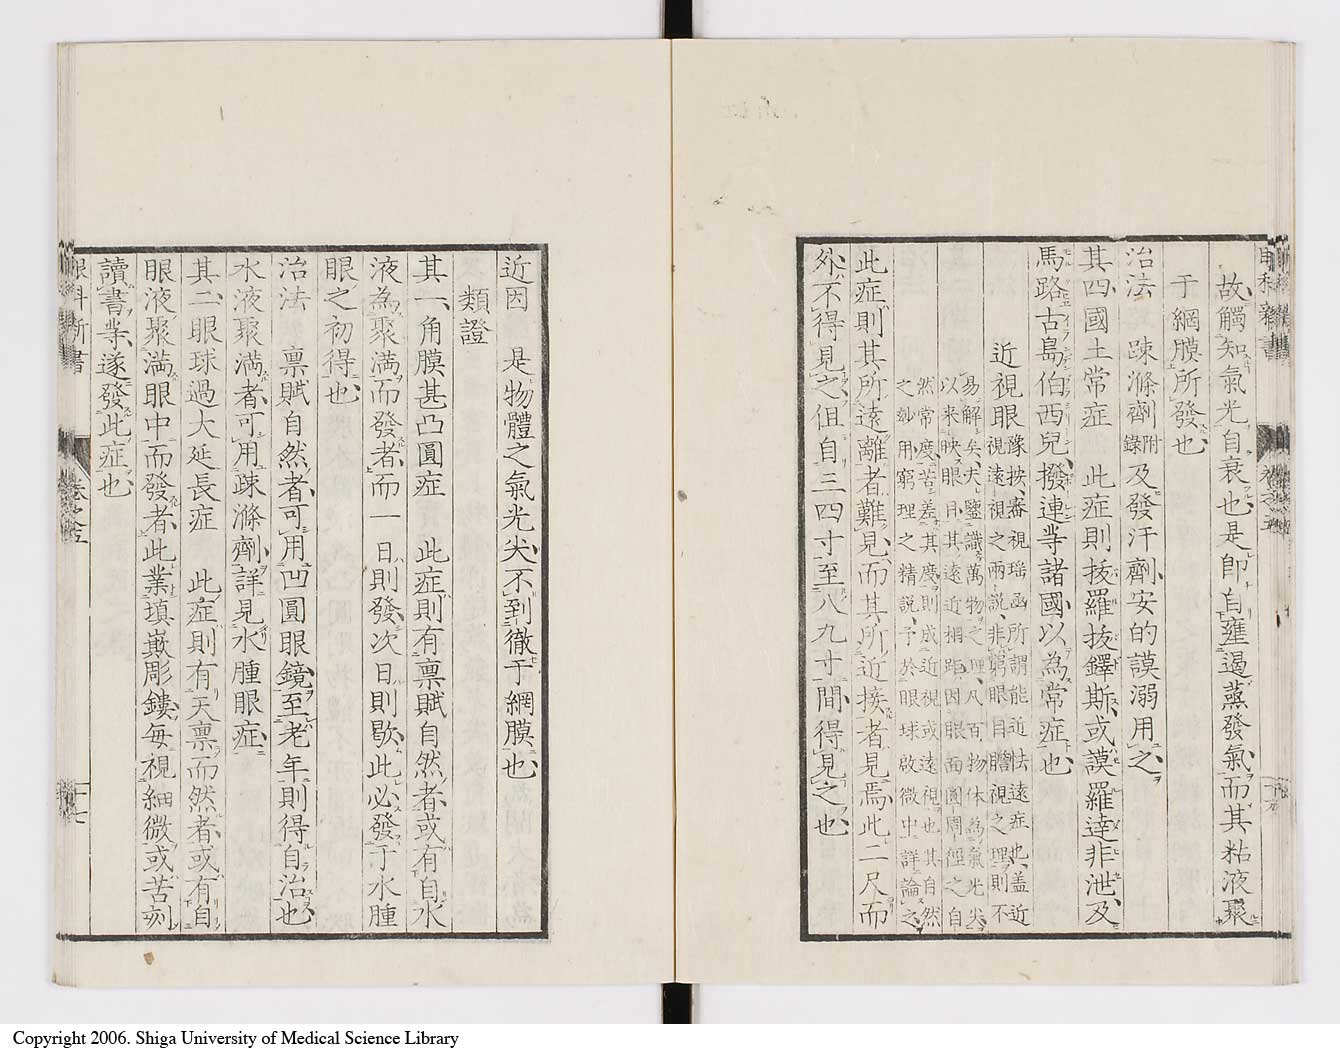 故觸知氣光自衰也是即自壅遏蒸發氣而其粘液聚
于網膜所發也
治法　疎滌劑附錄及發汗劑安的謨溺用之
其四國土常症　此症則拔羅拔鐸斯或謨羅達非泄及
馬路古島伯西兒撥連等諸國以為常症也
近視眼豫按審視瑶函所謂能近怯遠症也蓋近
視遠視之兩說非窮眼目瞻視之理則不
易解矣夫鑒識萬物之理凡百物体為氣光尖
以来映眼目其遠近相距因眼面圓周徑之自
然常度苦差其度則成近視或遠視也其自然
之妙用窮理之精說予於眼球啟微中詳論之
此症則其所遠離者難見而其所近接者見焉此二尺而
外不得見之但自三四寸至八九寸間得見之也
近因　是物體之氣光尖不到徹于網膜也
類證
其一角膜甚凸圓症　此症則有稟賦自然者或有自水
液為聚滿而發者而一日則發次日則歇此必發于水腫
眼之初得也
治法　稟賦自然者可用凹圓眼鏡至老年則得自治也
水液聚滿者可用疎滌劑詳見水腫眼症
其二眼球過大延長症　此症則有天稟而然者或有自
眼液聚滿眼中而發者此業填嵌彫鏤每視細微或苦刻
讀書業遂發此症也
眼科新書
卷之五
十七